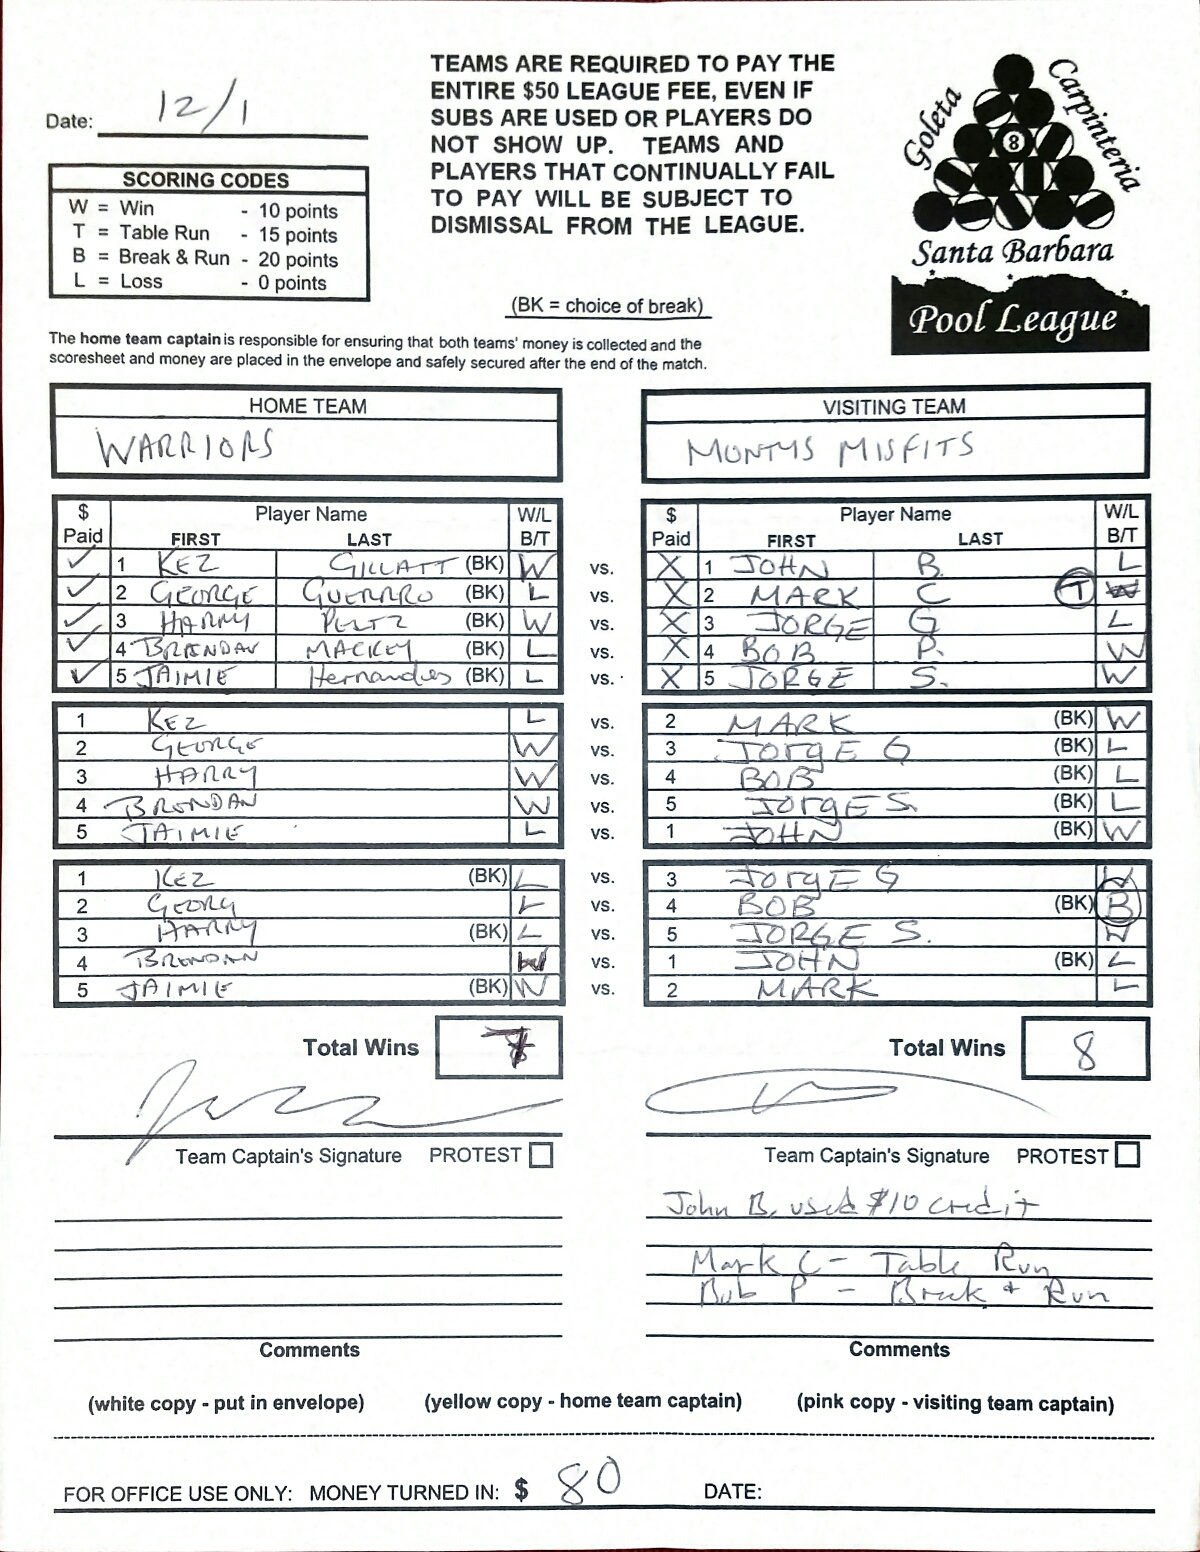 TEAMS ARE REQUIRED TO PAY THE
ENTIRE $50 LEAGUE FEE, EVEN IF
SUBS ARE USED OR PLAYERS DO
NOT SHOW UP. TEAMS AND
PLAYERS THAT CONTINUALLY FAIL
TO PAY WILL BE SUBJECT TO
DISMISSAL FROM THE LEAGUE.
Date: 12/1
Goleta
Carpinteria
8
Santa Barbara
Pool League
SCORING CODES
W = Win - 10 points
T = Table Run - 15 points
B = Break & Run - 20 points
L = Loss - 0 points
(BK = choice of break)
The home team captain is responsible for ensuring that both teams' money is collected and the
scoresheet and money are placed in the envelope and safely secured after the end of the match.
HOME TEAM VISITING TEAM
WARRIORS MONTYS MISFITS
$ Paid Player Name FIRST LAST W/L B/T $ Paid Player Name FIRST LAST W/L B/T
✓ 1 KEZ GILLATT (BK) W vs. X 1 JOHN B. L
✓ 2 GEORGE GUERRRO (BK) L vs. X 2 MARK C T
✓ 3 HARRY PELTZ (BK) W vs. X 3 JORGE G L
✓ 4 BRENDAN MACKEY (BK) L vs. X 4 BOB P. W
✓ 5 JAIMIE Hernandes (BK) L vs. X 5 JORGE S. W
1 KEZ L vs. 2 MARK (BK) W
2 GEORGE W vs. 3 JORGE G (BK) L
3 HARRY W vs. 4 BOB (BK) L
4 BRENDAN W vs. 5 JORGE S. (BK) L
5 JAIMIE L vs. 1 JOHN (BK) W
1 KEZ (BK) L vs. 3 JORGE G W
2 GEORG L vs. 4 BOB (BK) B
3 HARRY (BK) L vs. 5 JORGE S. W
4 BRENDAN W vs. 1 JOHN (BK) L
5 JAIMIE (BK) W vs. 2 MARK L
Total Wins 7 Total Wins 8
Team Captain's Signature PROTEST Team Captain's Signature PROTEST
John B. used $10 credit
Mark C - Table Run
Bob P - Break + Run
Comments Comments
(white copy - put in envelope) (yellow copy - home team captain) (pink copy - visiting team captain)
FOR OFFICE USE ONLY: MONEY TURNED IN: $ 80 DATE: